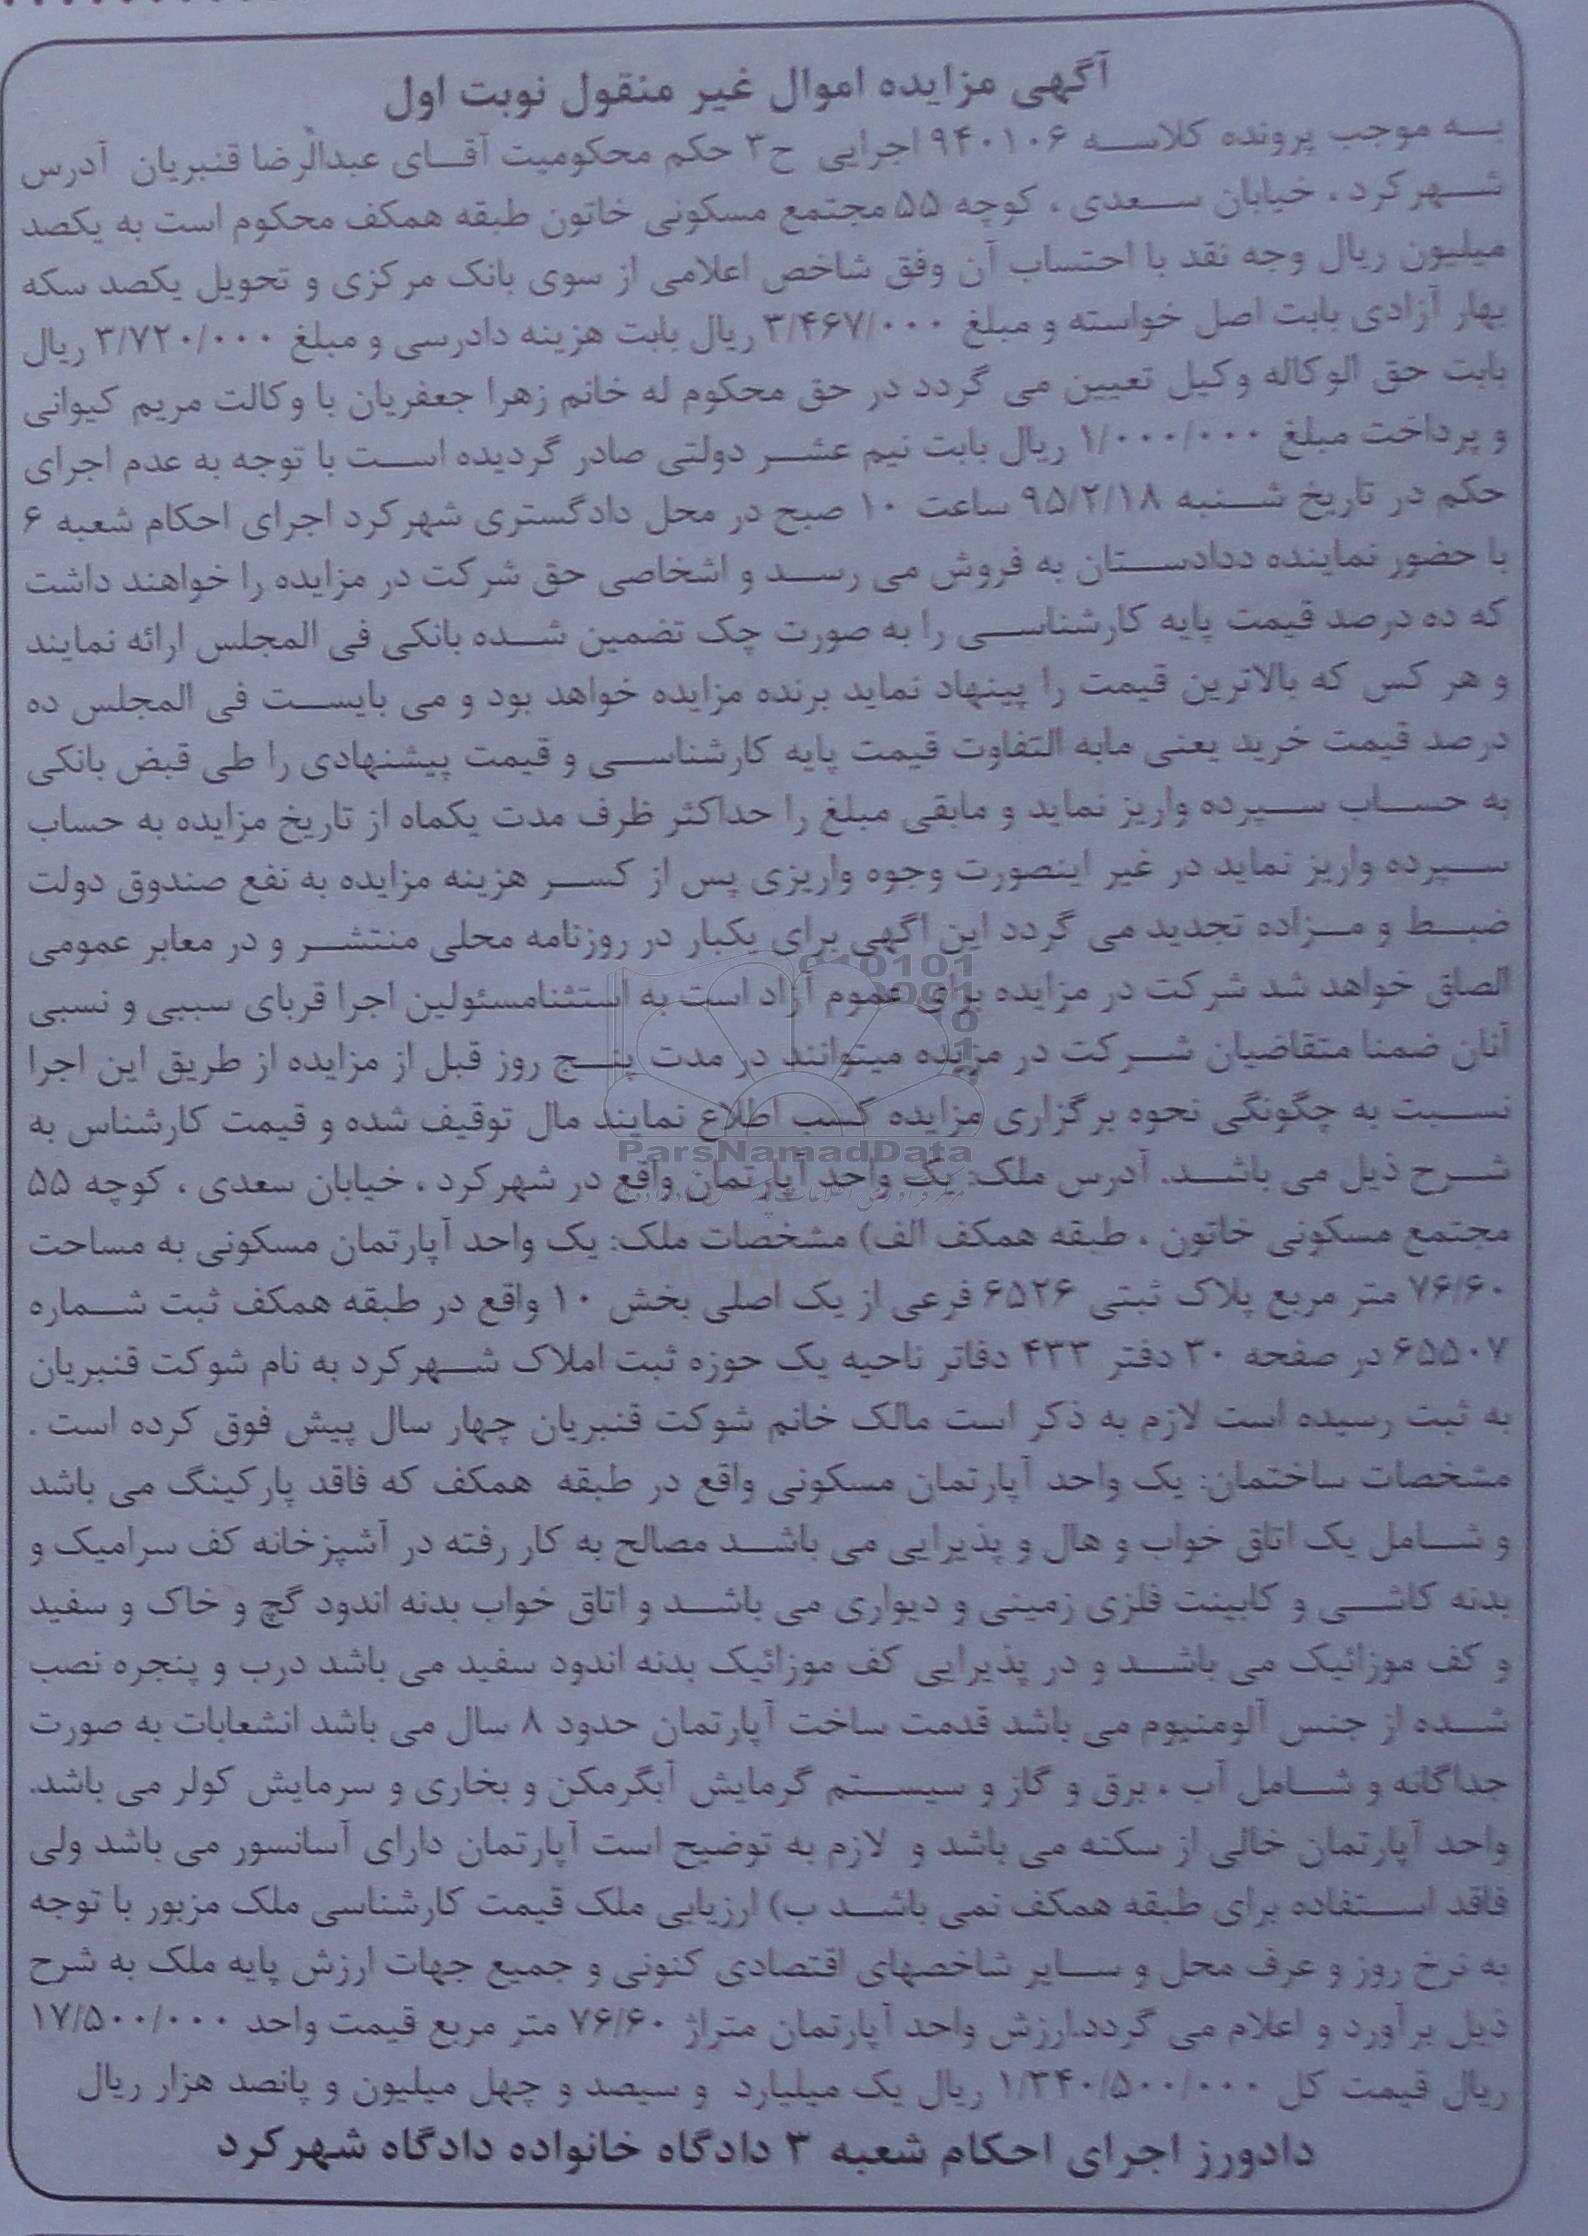 آگهی مزایده اموال غیر منقول نوبت اول
به موجب پرونده کلاسه ۹۴۰۱۰۶ اجرایی ح۳ حکم محکومیت آقای عبدالرضا قنبریان آدرس
شهرکرد ، خیابان سعدی ، کوچه ۵۵ مجتمع مسکونی خاتون طبقه همکف محکوم است به یکصد
میلیون ریال وجه نقد با احتساب آن وفق شاخص اعلامی از سوی بانک مرکزی و تحویل یکصد سکه
بهار آزادی بابت اصل خواسته و مبلغ ۳/۴۶۷/۰۰۰ ریال بابت هزینه دادرسی و مبلغ ۳/۷۲۰/۰۰۰ ریال
بابت حق الوکاله وکیل تعیین می گردد در حق محکوم له خانم زهرا جعفریان با وکالت مریم کیوانی
و پرداخت مبلغ ۱/۰۰۰/۰۰۰ ریال بابت نیم عشر دولتی صادر گردیده است با توجه به عدم اجرای
حکم در تاریخ شنبه ۹۵/۲/۱۸ ساعت ۱۰ صبح در محل دادگستری شهرکرد اجرای احکام شعبه ۶
با حضور نماینده ددادستان به فروش می رسد و اشخاصی حق شرکت در مزایده را خواهند داشت
که ده درصد قیمت پایه کارشناسی را به صورت چک تضمین شده بانکی فی المجلس ارائه نمایند
و هر کس که بالاترین قیمت را پینهاد نماید برنده مزایده خواهد بود و می بایست فی المجلس ده
درصد قیمت خرید یعنی مابه التفاوت قیمت پایه کارشناسی و قیمت پیشنهادی را طی قبض بانکی
به حساب سپرده واریز نماید و مابقی مبلغ را حداکثر ظرف مدت یکماه از تاریخ مزایده به حساب
سپرده واریز نماید در غیر اینصورت وجوه واریزی پس از کسر هزینه مزایده به نفع صندوق دولت
ضبط و مزاده تجدید می گردد این اگهی برای یکبار در روزنامه محلی منتشر و در معابر عمومی
الصاق خواهد شد شرکت در مزایده برای عموم آزاد است به استثنامسئولین اجرا قربای سببی و نسبی
آنان ضمنا متقاضیان شرکت در مزایده میتوانند در مدت پنج روز قبل از مزایده از طریق این اجرا
نسبت به چگونگی نحوه برگزاری مزایده کسب اطلاع نمایند مال توقیف شده و قیمت کارشناس به
ParsNamadData
شرح ذیل می باشد. آدرس ملک: یک واحد آپارتمان واقع در شهرکرد ، خیابان سعدی ، کوچه ۵۵
مجتمع مسکونی خاتون ، طبقه همکف الف) مشخصات ملک: یک واحد آپارتمان مسکونی به مساحت
۷۶/۶۰ متر مربع پلاک ثبتی ۶۵۲۶ فرعی از یک اصلی بخش ۱۰ واقع در طبقه همکف ثبت شماره
۶۵۵۰۷ در صفحه ۳۰ دفتر ۴۳۳ دفاتر ناحیه یک حوزه ثبت املاک شهرکرد به نام شوکت قنبریان
به ثبت رسیده است لازم به ذکر است مالک خانم شوکت قنبریان چهار سال پیش فوق کرده است .
مشخصات ساختمان: یک واحد آپارتمان مسکونی واقع در طبقه همکف که فاقد پارکینگ می باشد
و شامل یک اتاق خواب و هال و پذیرایی می باشد مصالح به کار رفته در آشپزخانه کف سرامیک و
بدنه کاشی و کابینت فلزی زمینی و دیواری می باشد و اتاق خواب بدنه اندود گچ و خاک و سفید
و کف موزائیک می باشد و در پذیرایی کف موزائیک بدنه اندود سفید می باشد درب و پنجره نصب
شده از جنس آلومنیوم می باشد قدمت ساخت آپارتمان حدود ۸ سال می باشد انشعابات به صورت
جداگانه و شامل آب ، برق و گاز و سیستم گرمایش آبگرمکن و بخاری و سرمایش کولر می باشد.
واحد آپارتمان خالی از سکنه می باشد و لازم به توضیح است آپارتمان دارای آسانسور می باشد ولی
فاقد استفاده برای طبقه همکف نمی باشد ب) ارزیابی ملک قیمت کارشناسی ملک مزبور با توجه
به نرخ روز و عرف محل و سایر شاخصهای اقتصادی کنونی و جمیع جهات ارزش پایه ملک به شرح
ذیل برآورد و اعلام می گردد.ارزش واحد آپارتمان متراژ ۷۶/۶۰ متر مربع قیمت واحد ۱۷/۵۰۰/۰۰۰
ریال قیمت کل ۱/۳۴۰/۵۰۰/۰۰۰ ریال یک میلیارد و سیصد و چهل میلیون و پانصد هزار ریال
دادورز اجرای احکام شعبه ۳ دادگاه خانواده دادگاه شهرکرد